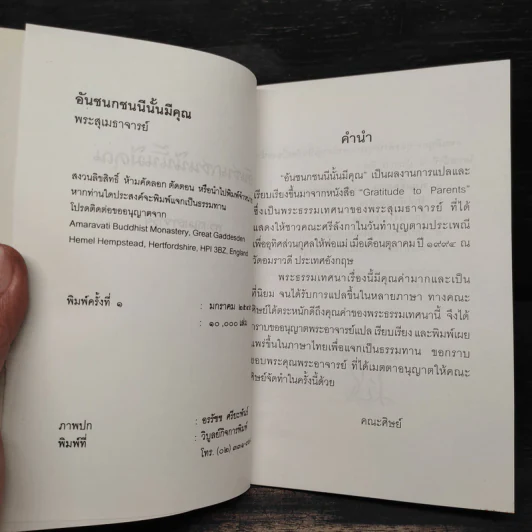 อันชนกชนนีนั้นมีคุณ
พระสุเมธาจารย์
สงวนลิขสิทธิ์ ห้ามคัดลอก ตัดตอน หรือนำไปพิมพ์จำหน่าย
หากท่านใดประสงค์จะพิมพ์แจกเป็นธรรมทาน
โปรดติดต่อขออนุญาตจาก
Amaravati Buddhist Monastery, Great Gaddesden
Hemel Hempstead, Hertfordshire, HPI 3BZ, England
พิมพ์ครั้งที่ ๑ : มกราคม
: ๑๐,๐๐๐ เล่ม
ภาพปก :
พิมพ์ที่ : วิบูลย์กิจการพิมพ์
โทร: (๐๒)
คำนำ
"อันชนกชนนีนั้นมีคุณ" เป็นผลงานการแปลและ
เรียบเรียงขึ้นมาจากหนังสือ "Gratitude to Parents"
ซึ่งเป็นพระธรรมเทศนาของพระสุเมธาจารย์ ที่ได้
แสดงให้ชาวคณะศรีลังกาในวันทำบุญตามประเพณี
เพื่ออุทิศส่วนกุศลให้พ่อแม่ เมื่อเดือนตุลาคม ปี ๑๙๙๔ ณ
วัดอมราวดี ประเทศอังกฤษ
พระธรรมเทศนาเรื่องนี้มีคุณค่ามากและเป็น
ที่นิยม จนได้รับการแปลขึ้นในหลายภาษา ทางคณะ
ศิษย์ได้ตระหนักดีถึงคุณค่าของพระธรรมเทศนานี้ จึงได้
กราบขออนุญาตพระอาจารย์แปล เรียบเรียง และพิมพ์เผย
แพร่ขึ้นในภาษาไทยเพื่อแจกเป็นธรรมทาน ขอกราบ
ขอบพระคุณพระอาจารย์ ที่ได้เมตตาอนุญาตให้คณะ
ศิษย์จัดทำในครั้งนี้ด้วย
คณะศิษย์